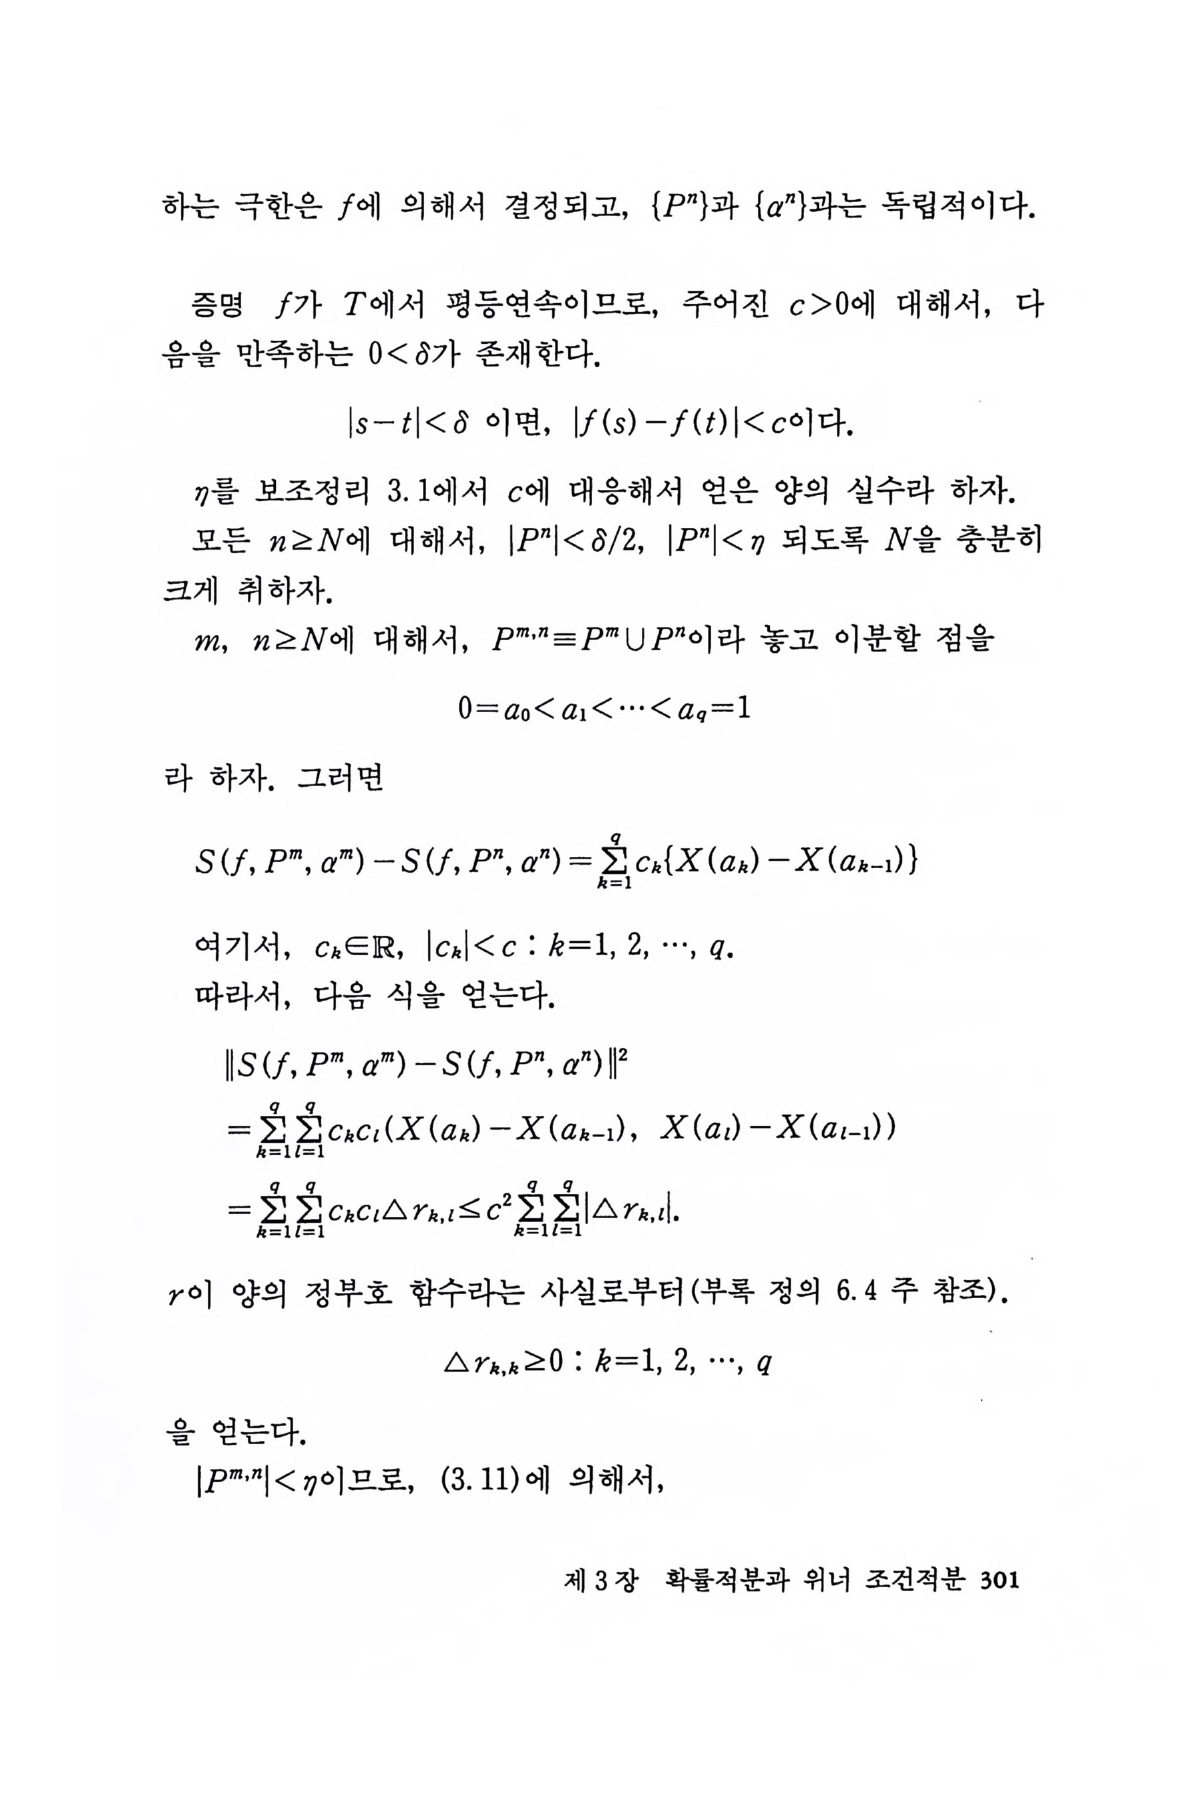 하는 극한은 f에 의해서 결정되고, {Pⁿ}과 {αⁿ}과는 독립적이다.
증명 f가 T에서 평등연속이므로, 주어진 c>0에 대해서, 다
음을 만족하는 0<δ가 존재한다.
|s−t|<δ 이면, |f(s)−f(t)|<c이다.
η를 보조정리 3.1에서 c에 대응해서 얻은 양의 실수라 하자.
모든 n≥N에 대해서, |Pⁿ|<δ/2, |Pⁿ|<η 되도록 N을 충분히
크게 취하자.
m, n≥N에 대해서, P^{m,n}≡P^m∪P^n이라 놓고 이분할 점을
0=a₀<a₁<⋯<a_q=1
라 하자. 그러면
S(f, P^m, α^m)−S(f, P^n, α^n)=∑_{k=1}^{q} c_k{X(a_k)−X(a_{k−1})}
여기서, c_k∈ℝ, |c_k|<c : k=1, 2, ⋯, q.
따라서, 다음 식을 얻는다.
‖S(f, P^m, α^m)−S(f, P^n, α^n)‖²
=∑_{k=1}^{q}∑_{l=1}^{q} c_k c_l(X(a_k)−X(a_{k−1}), X(a_l)−X(a_{l−1}))
=∑_{k=1}^{q}∑_{l=1}^{q} c_k c_l△r_{k,l}≤c²∑_{k=1}^{q}∑_{l=1}^{q}|△r_{k,l}|.
r이 양의 정부호 함수라는 사실로부터(부록 정의 6.4 주 참조).
△r_{k,k}≥0 : k=1, 2, ⋯, q
을 얻는다.
|P^{m,n}|<η이므로, (3.11)에 의해서,
제 3 장 확률적분과 위너 조건적분 301